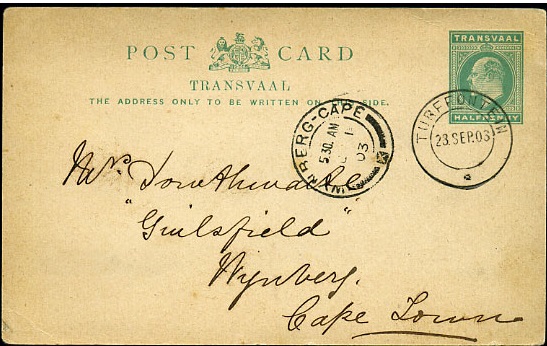 POST CARD
TRANSVAAL
THE ADDRESS ONLY TO BE WRITTEN ON THIS SIDE.
TRANSVAAL
HALFPENNY
TURFFONTEIN
23.SEP.03
WYNBERG-CAPE
5.30 AM
03
Mrs
"Guilsfield"
Wynberg.
Cape Town